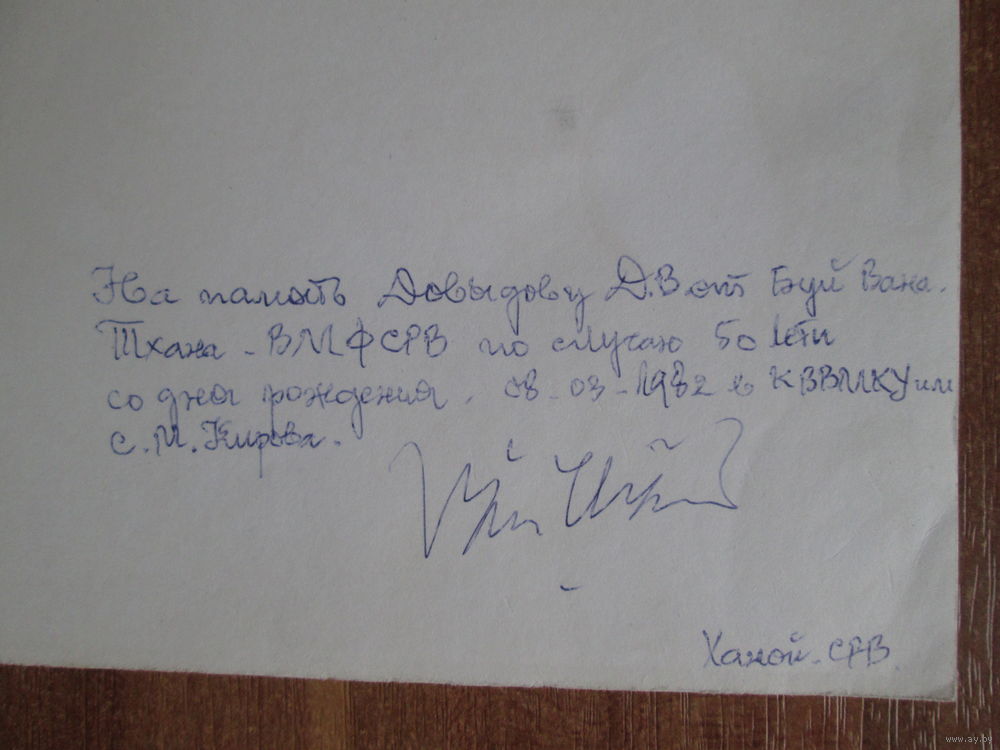 На память Довыдову Д.В от Буй Вана.
Тхана - ВМФ СРВ по случаю 50 лети
со дня рождения. 08-03-1982 в КВВМКУ им
С.М. Кирова.
Ханой. СРВ
www.ay.by